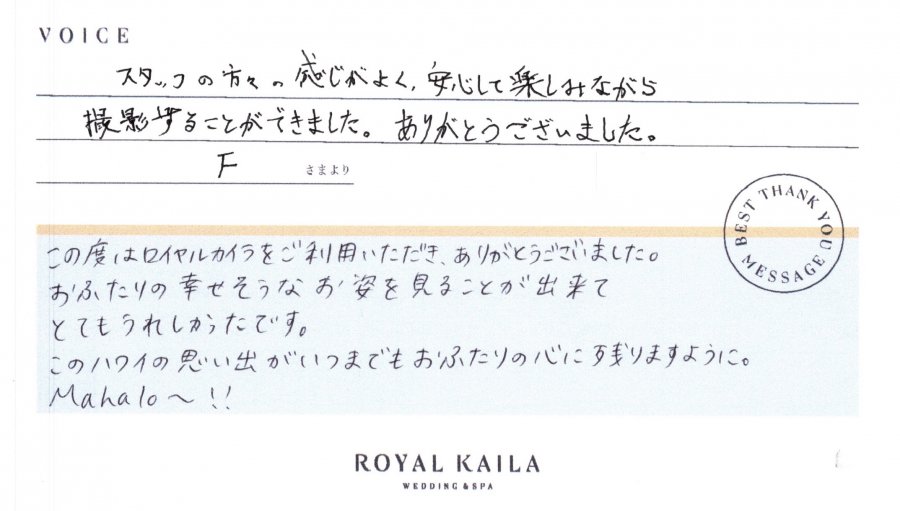 VOICE
スタッフの方々の感じがよく、安心して楽しみながら
撮影することができました。ありがとうございました。
F さまより
BEST THANK YOU MESSAGE
この度はロイヤルカイラをご利用いただき、ありがとうございました。
おふたりの幸せそうなお姿を見ることが出来て
とてもうれしかったです。
このハワイの思い出がいつまでもおふたりの心に残りますように。
Mahalo〜!!
ROYAL KAILA
WEDDING & SPA